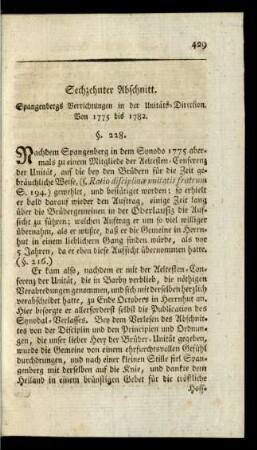 429
Sechzehnter Abschnitt.
Spangenbergs Verrichtungen in der Unitäts-Direction.
Von 1775 bis 1782.
§. 228.
Nachdem Spangenberg in dem Synodo 1775 aber-
mals zu einem Mitgliede der Aeltesten-Conferenz
der Unität, auf die bey den Brüdern für die Zeit ge-
bräuchliche Weise, (s. Ratio disciplinæ unitatis fratrum
S. 194.) gewehlet, und bestätiget worden: so erhielt
er bald darauf wieder den Auftrag, einige Zeit lang
über die Brüdergemeinen in der Oberlausitz die Auf-
sicht zu führen; welchen Auftrag er um so viel williger
übernahm, als er wußte, daß er die Gemeine in Herrn-
hut in einem lieblichern Gang finden würde, als vor
5 Jahren, da er eben diese Aufsicht übernommen hatte.
(§. 216.)
Er kam also, nachdem er mit der Aeltesten-Con-
ferenz der Unität, die in Barby verblieb, die nöthigen
Verabredungen genommen, und sich mit derselben herzlich
verabschiedet hatte, zu Ende Octobers in Herrnhut an.
Hier besorgte er allerforderst selbst die Publication des
Synodal-Verlasses. Bey dem Verlesen des Abschnit-
tes von der Disciplin und den Principien und Ordnun-
gen, die unser lieber Herr der Brüder-Unität gegeben,
wurde die Gemeine von einem ehrfurchtsvollen Gefühl
durchdrungen, und nach einer kleinen Stille fiel Span-
genberg mit derselben auf die Knie, und dankte dem
Heiland in einem brünstigen Gebet für die tröstliche
Hoff-